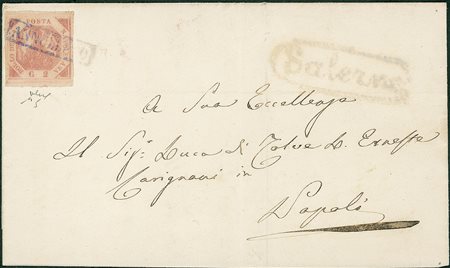 POSTA
ANNULLATO
G 2
Salerno
A Sua Eccellenza
Il Sigr. Duca di Tolve D. Ernesto
Carignani in
Napoli